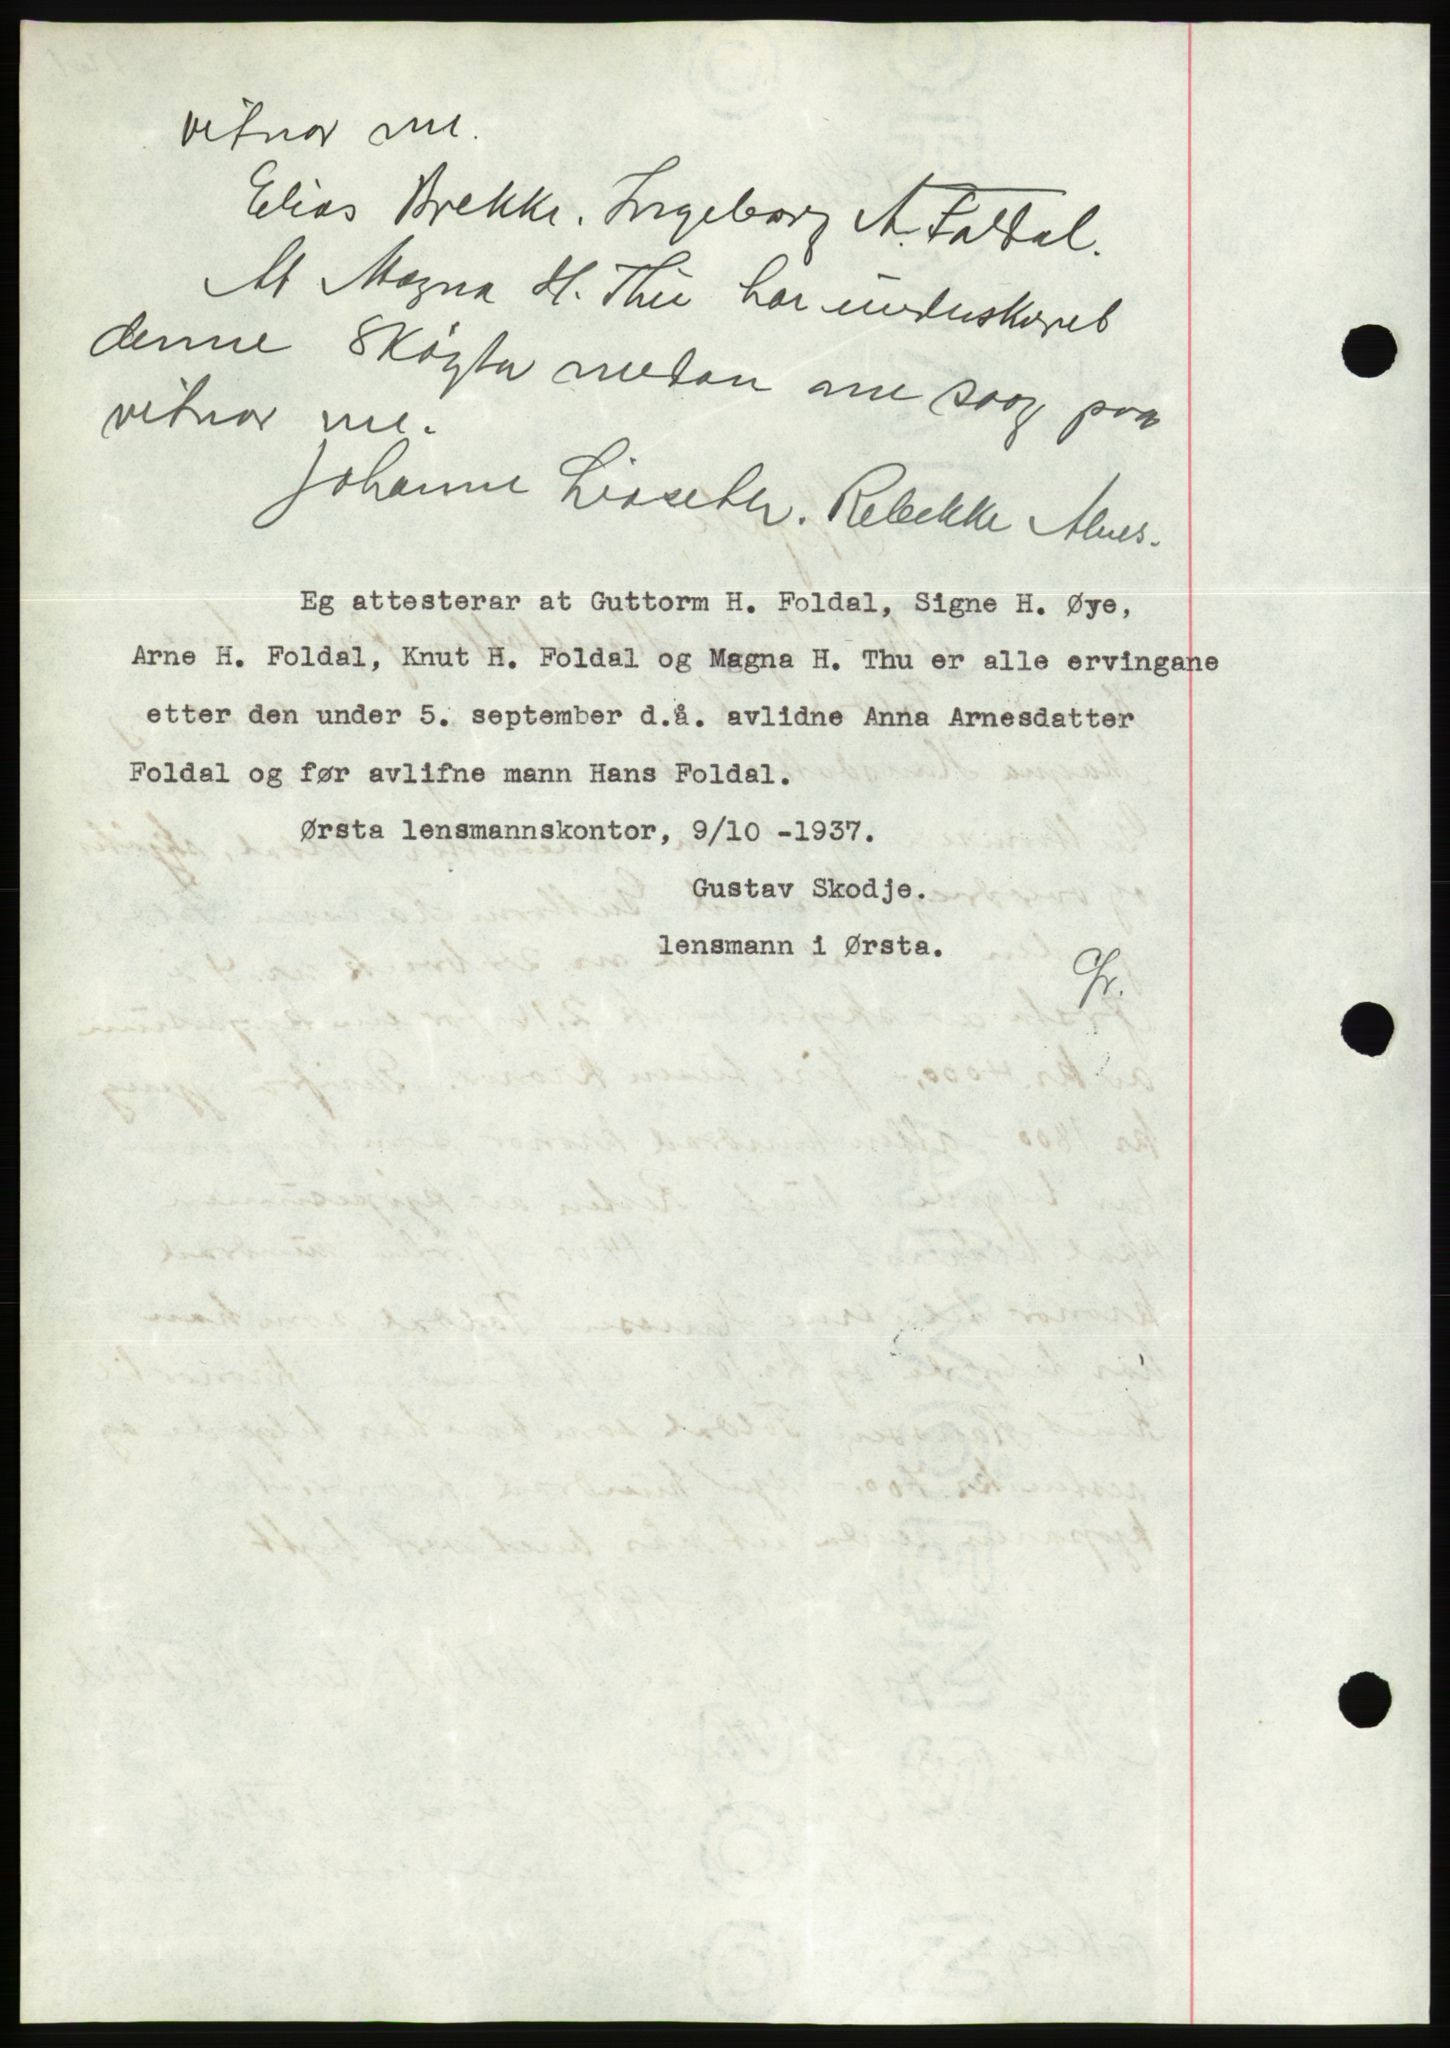 vitnar me.
Elias Brekke. Ingeborg A. Foldal.
At Magna H. Thu har underskrevet
denne Skøyta medan me saag paa
vitnar me.
Johanne Liaseter. Rebekke Alnes.
Eg attesterar at Guttorm H. Foldal, Signe H. Øye,
Arne H. Foldal, Knut H. Foldal og Magna H. Thu er alle ervingane
etter den under 5. september d.å. avlidne Anna Arnesdatter
Foldal og før avlifne mann Hans Foldal.
Ørsta lensmannskontor, 9/10 -1937.
Gustav Skodje.
lensmann i Ørsta.